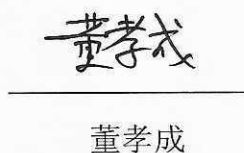 董孝成
董孝成